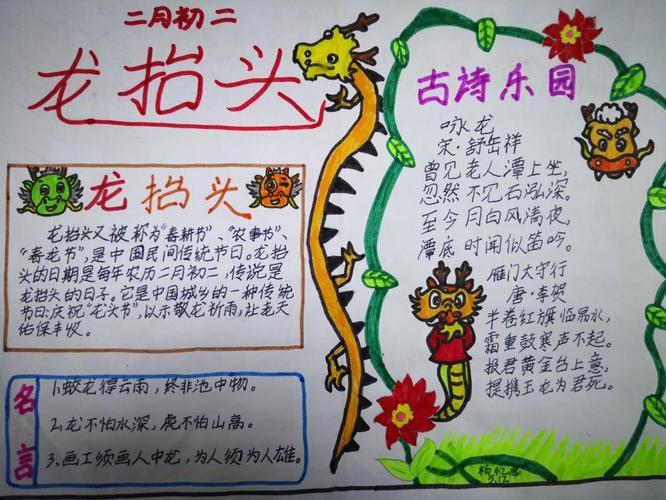 二月初二
龙抬头
龙抬头
龙抬头又被称为"春耕节"、"农事节"、
"春龙节",是中国民间传统节日。龙抬
头的日期是每年农历二月初二,传说是
龙抬头的日子。它是中国城乡的一种传统
节日,庆祝"龙头节",以示敬龙祈雨,让老天
佑保丰收。
名言
1.蛟龙得云雨,终非池中物。
2.龙不怕水深,虎不怕山高。
3.画工须画人中龙,为人须为人雄。
古诗乐园
咏龙
宋·舒岳祥
曾见老人潭上坐,
忽然不见石泓深。
至今月白风清夜,
潭底时闻似笛吟。
雁门太守行
唐·李贺
半卷红旗临易水,
霜重鼓寒声不起。
报君黄金台上意,
提携玉龙为君死。
5.12